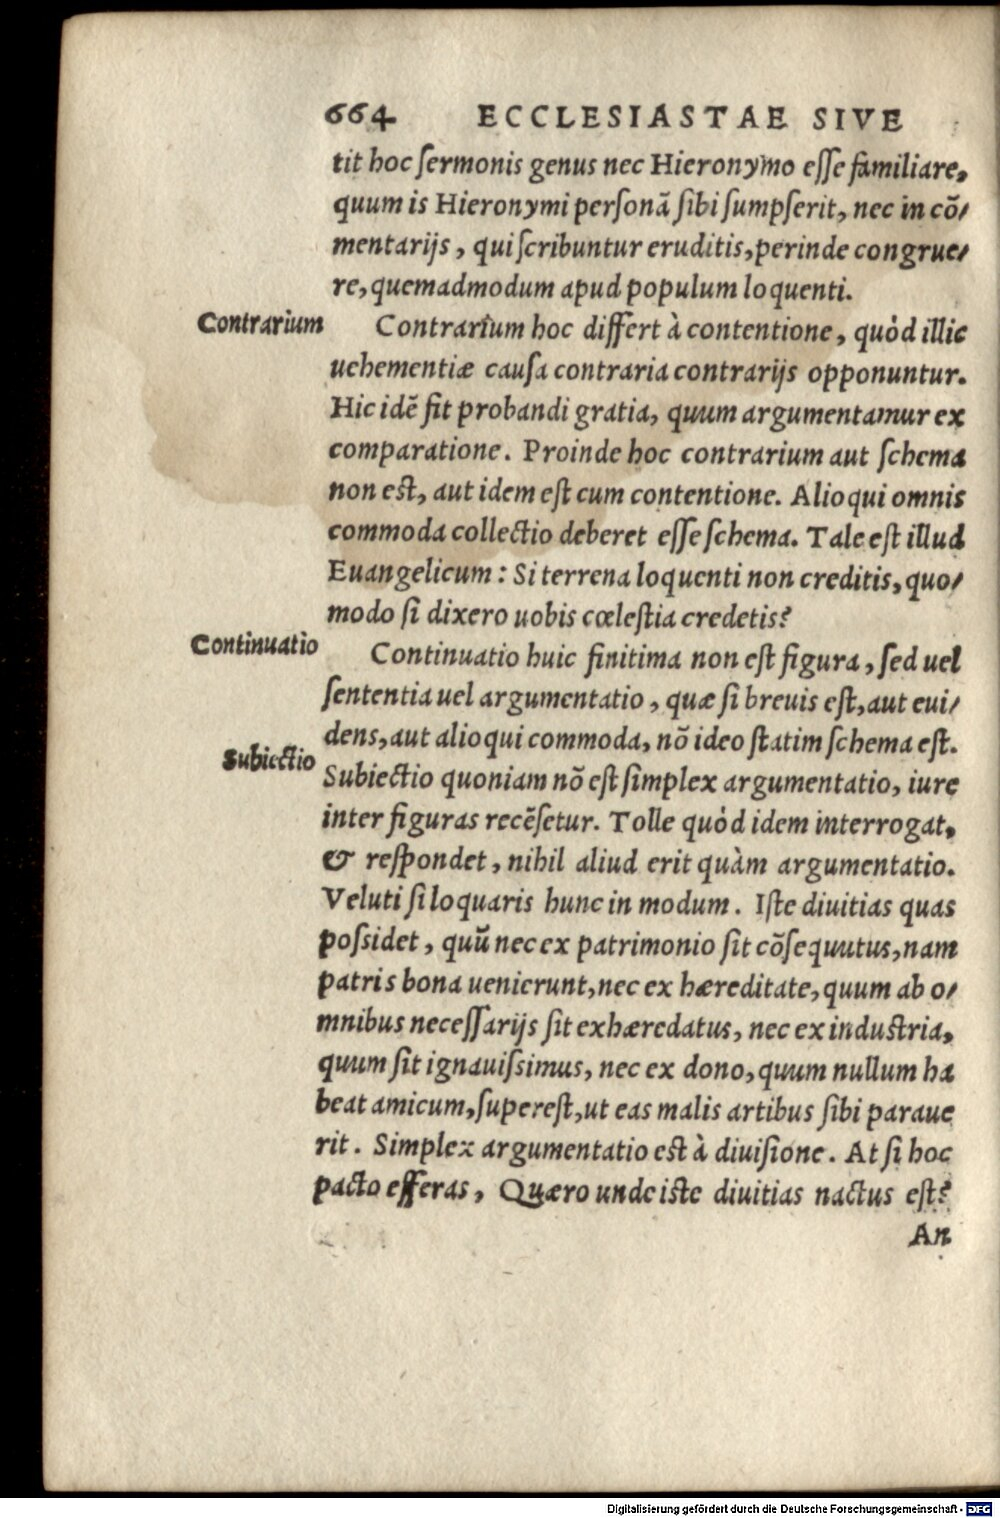 664 ECCLESIASTAE SIVE
tit hoc ſermonis genus nec Hieronymo eſſe familiare,
quum is Hieronymi perſonā ſibi ſumpſerit, nec in cō/
mentarijs, qui ſcribuntur eruditis, perinde congrue/
re, quemadmodum apud populum loquenti.
Contrarium
Contrarium hoc differt à contentione, quòd illic
uehementiæ cauſa contraria contrarijs opponuntur.
Hic idē fit probandi gratia, quum argumentamur ex
comparatione. Proinde hoc contrarium aut ſchema
non eſt, aut idem eſt cum contentione. Alioqui omnis
commoda collectio deberet eſſe ſchema. Tale eſt illud
Euangelicum: Si terrena loquenti non creditis, quo/
modo ſi dixero uobis cœleſtia credetis?
Continuatio
Continuatio huic finitima non eſt figura, ſed uel
ſententia uel argumentatio, quæ ſi breuis eſt, aut eui/
dens, aut alioqui commoda, nō ideo ſtatim ſchema eſt.
Subiectio
Subiectio quoniam nō eſt ſimplex argumentatio, iure
inter figuras recēſetur. Tolle quòd idem interrogat,
& reſpondet, nihil aliud erit quàm argumentatio.
Veluti ſi loquaris hunc in modum. Iſte diuitias quas
poſsidet, quū nec ex patrimonio ſit cōſequutus, nam
patris bona uenierunt, nec ex hæreditate, quum ab o/
mnibus neceſſarijs ſit exhæredatus, nec ex induſtria,
quum ſit ignauiſsimus, nec ex dono, quum nullum ha
beat amicum, ſupereſt, ut eas malis artibus ſibi paraue
rit. Simplex argumentatio eſt à diuiſione. At ſi hoc
pacto efferas, Quæro unde iſte diuitias nactus eſt?
An
Digitalisierung gefördert durch die Deutsche Forschungsgemeinschaft - DFG